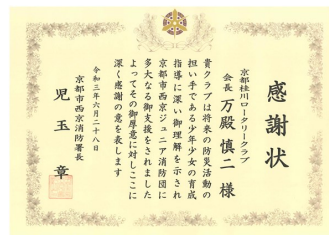 感謝状
京都桂川ロータリークラブ
会長 万殿慎二様
貴クラブは将来の防災活動の
担い手である少年少女の育成
指導に深い御理解を示され
京都市西京ジュニア消防団に
多大なる御支援をされました
よってその御厚意に対しここに
深く感謝の意を表します
令和三年六月二十八日
京都市西京消防署長
児玉章